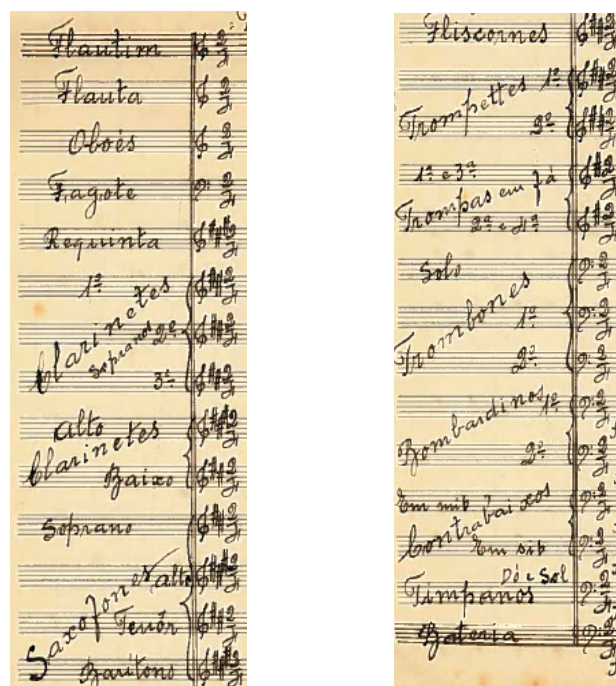 Flautim
Flauta
Oboés
Fagote
Requinta
1º
Clarinetes
Sopranos 2º
3º
Alto
Clarinetes
Baixo
Soprano
Saxofones Alto
Tenôr
Baritono
Fliscornes
Trompettes 1º
2º
1ª e 3ª
Trompas em fá
2ª e 4ª
Solo
Trombones 1º
2º
Bombardinos 1º
2º
Em mib
Contrabaixos
Em sib
Dó e Sol
Timpanos
Bateria